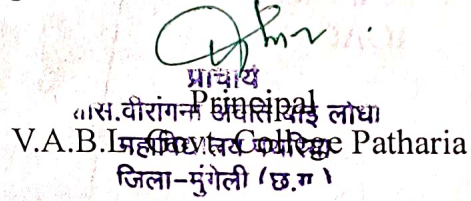 प्राचार्य
Principal
शास.वीरांगना अवंति बाई लोधी
V.A.B.L. Govt. College Patharia
महाविद्यालय पथरिया
जिला-मुंगेली (छ.ग.)